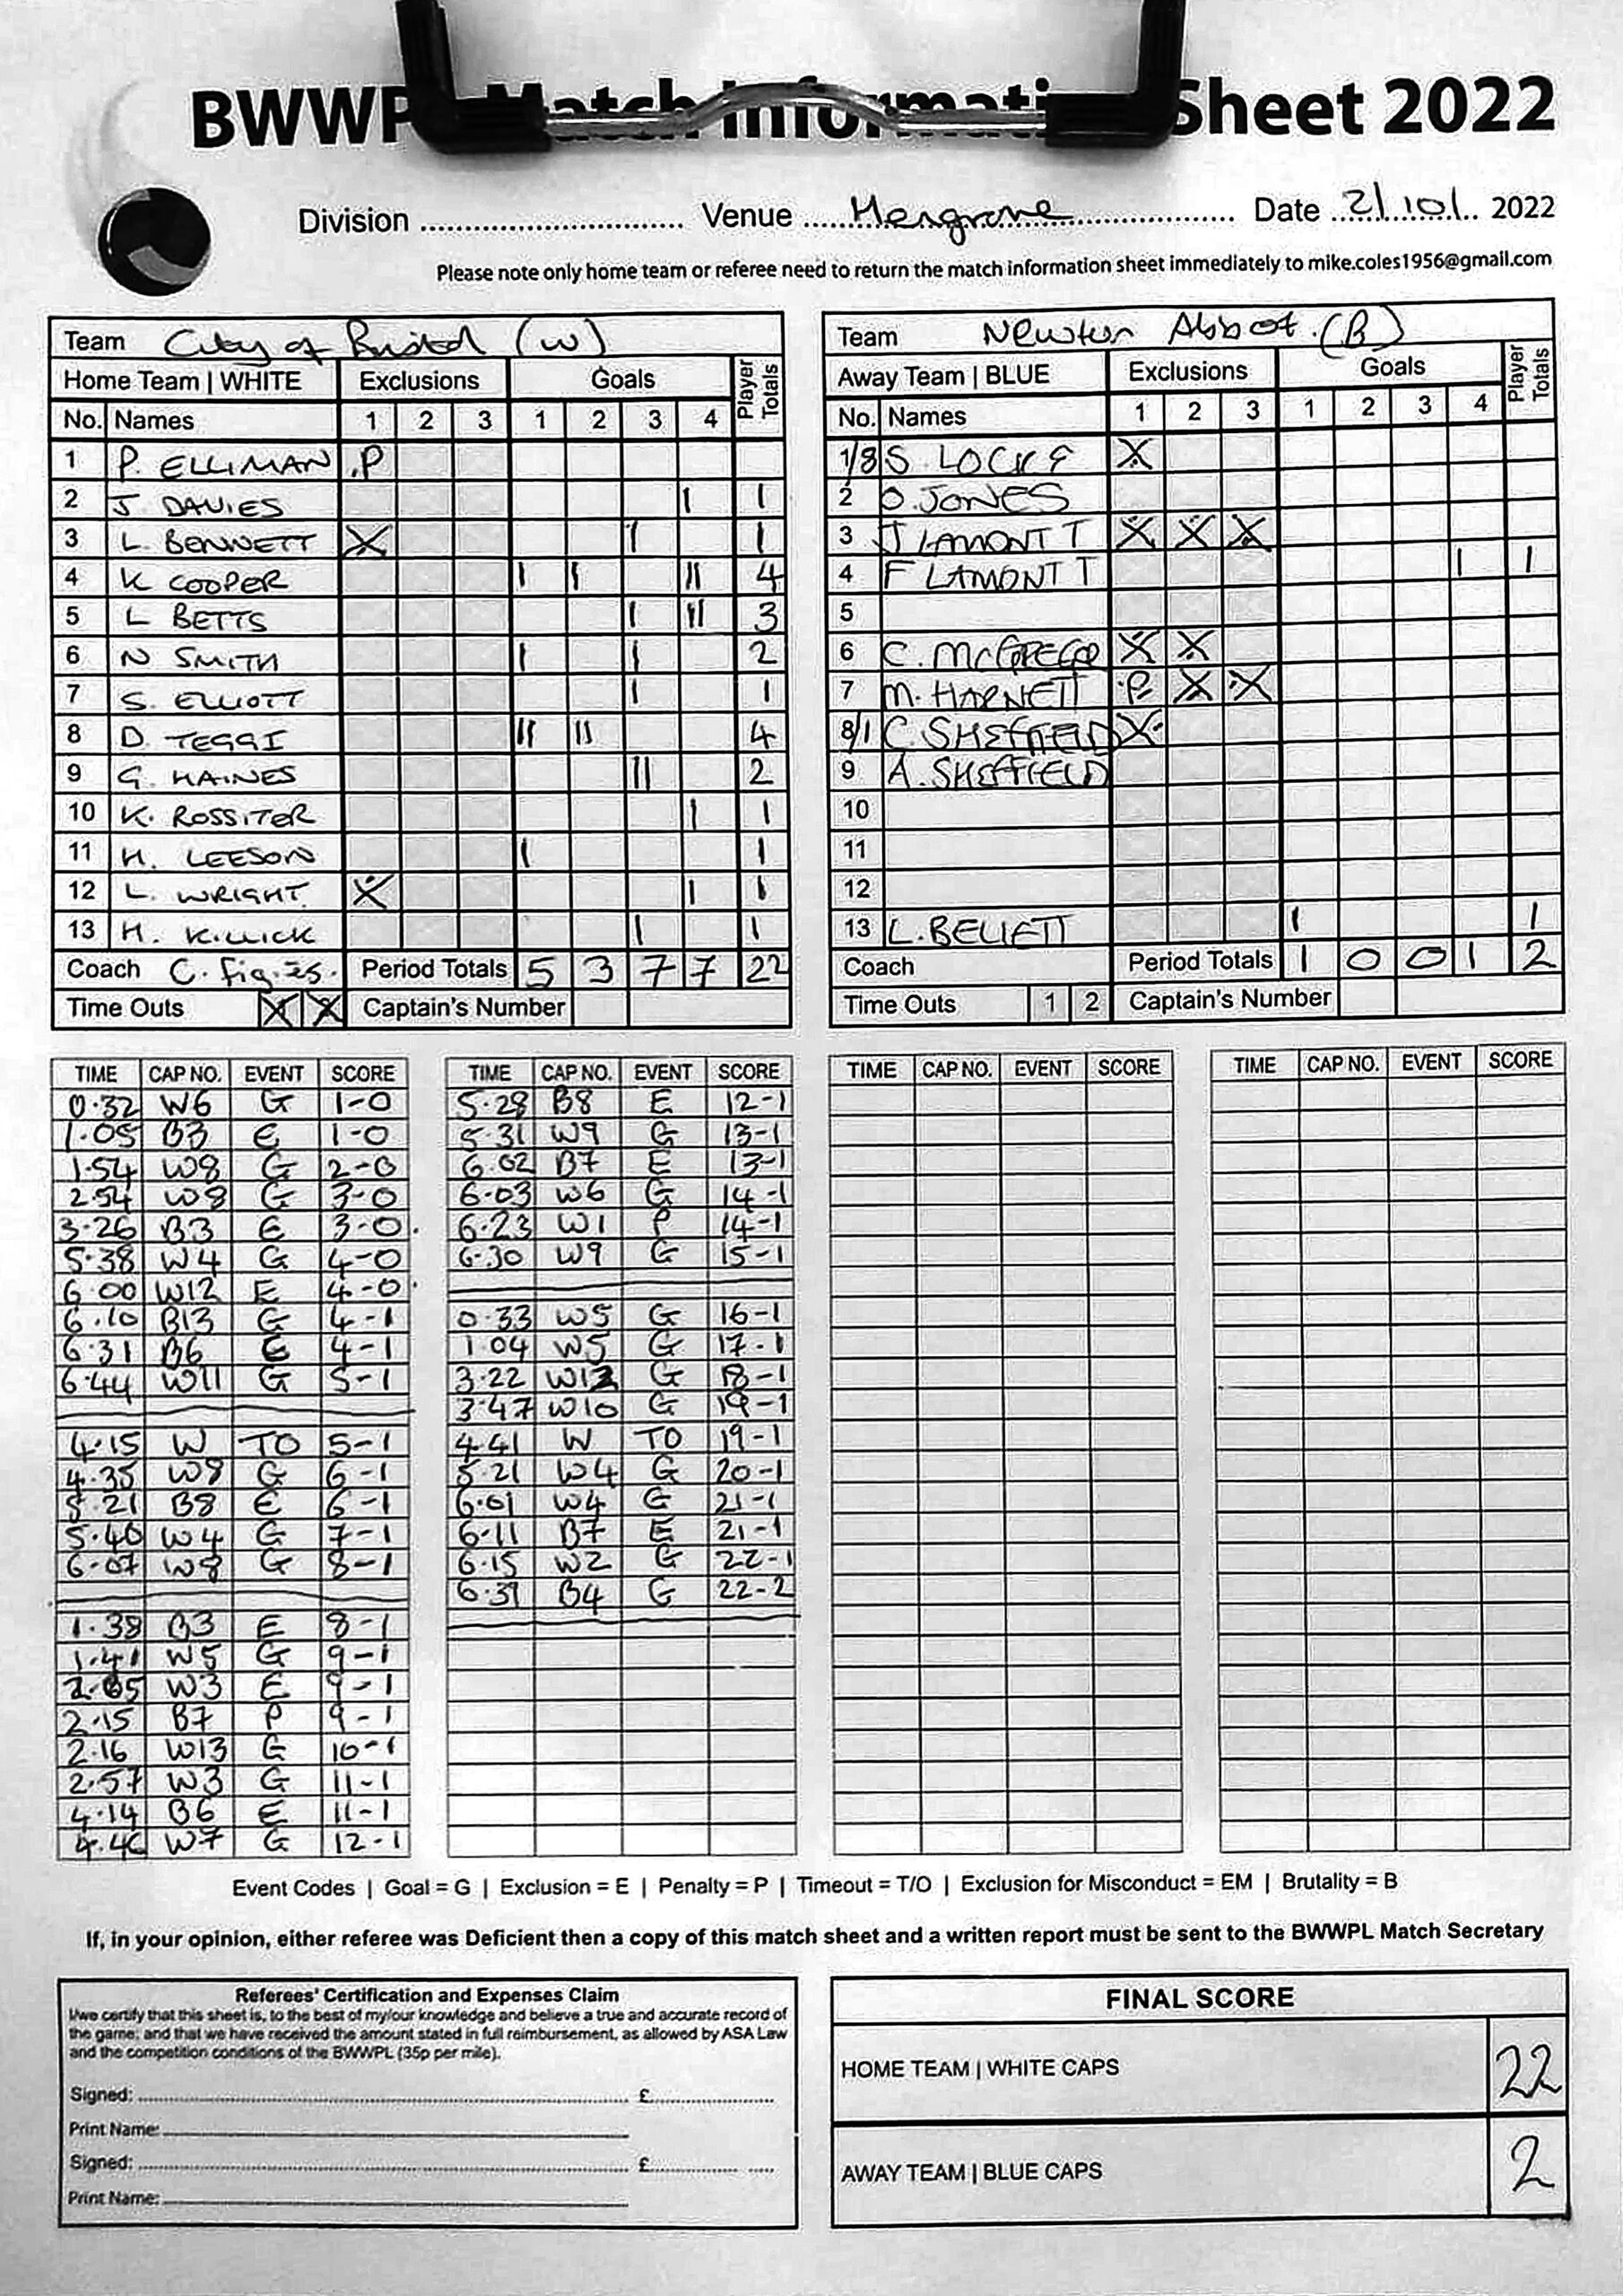 BWWP Match Information Sheet 2022
Division ............ Venue ... Hengrove ............ Date ... 2/10/ ... 2022
Please note only home team or referee need to return the match information sheet immediately to mike.coles1956@gmail.com
Team City of Bristol (W)
Home Team | WHITE Exclusions Goals Player Totals
No. Names 1 2 3 1 2 3 4
1 P. ELLIMAN .P
2 J. DAVIES | 1
3 L. BENNETT X | 1
4 K COOPER | | || 4
5 L BETTS | || 3
6 N SMITH | | 2
7 S. ELLIOTT | 1
8 D. TEGGI || || 4
9 G. HAINES || 2
10 K. ROSSITER | 1
11 H. LEESON | 1
12 L. WRIGHT. X | 1
13 H. KILLICK | 1
Coach C. Period Totals 5 3 7 7 22
Time Outs X X Captain's Number
Team Newton Abbot. (B)
Away Team | BLUE Exclusions Goals Player Totals
No. Names 1 2 3 1 2 3 4
1/8 S. LOCKE X
2 O. JONES
3 J LAMONTT X X X
4 F LAMONTT | 1
5
6 C. McGREGO X X
7 M. HARNETT P X X
8/1 C. SHEFFIELD X
9 A. SHEFFIELD
10
11
12
13 L. BELLETT | 1
Coach Period Totals 1 0 0 1 2
Time Outs 1 2 Captain's Number
TIME CAP NO. EVENT SCORE
0.32 W6 G 1-0
1.05 B3 E 1-0
1.54 W8 G 2-0
2.54 W8 G 3-0
3.26 B3 E 3-0
5.38 W4 G 4-0
6.00 W12 E 4-0
6.10 B13 G 4-1
6.31 B6 E 4-1
6.44 W11 G 5-1
4.15 W TO 5-1
4.35 W8 G 6-1
5.21 B8 E 6-1
5.40 W4 G 7-1
6.07 W8 G 8-1
1.38 B3 E 8-1
1.41 W5 G 9-1
2.05 W3 E 9-1
2.15 B7 P 9-1
2.16 W13 G 10-1
2.57 W3 G 11-1
4.14 B6 E 11-1
W7 G 12-1
TIME CAP NO. EVENT SCORE
5.28 B8 E 12-1
5.31 W9 G 13-1
6.02 B7 E 13-1
6.03 W6 G 14-1
6.23 W1 P 14-1
6.30 W9 G 15-1
0.33 W5 G 16-1
1.04 W5 G 17-1
3.22 W12 G 18-1
3.47 W10 G 19-1
4.41 W TO 19-1
5.21 W4 G 20-1
6.01 W4 G 21-1
6.11 B7 E 21-1
6.15 W2 G 22-1
6.31 B4 G 22-2
TIME CAP NO. EVENT SCORE
TIME CAP NO. EVENT SCORE
Event Codes | Goal = G | Exclusion = E | Penalty = P | Timeout = T/O | Exclusion for Misconduct = EM | Brutality = B
If, in your opinion, either referee was Deficient then a copy of this match sheet and a written report must be sent to the BWWPL Match Secretary
Referees' Certification and Expenses Claim
I/we certify that this sheet is, to the best of my/our knowledge and believe a true and accurate record of
the game; and that we have received the amount stated in full reimbursement, as allowed by ASA Law
and the competition conditions of the BWWPL (35p per mile).
Signed: ............ £............
Print Name: ____________
Signed: ............ £............
Print Name: ____________
FINAL SCORE
HOME TEAM | WHITE CAPS 22
AWAY TEAM | BLUE CAPS 2